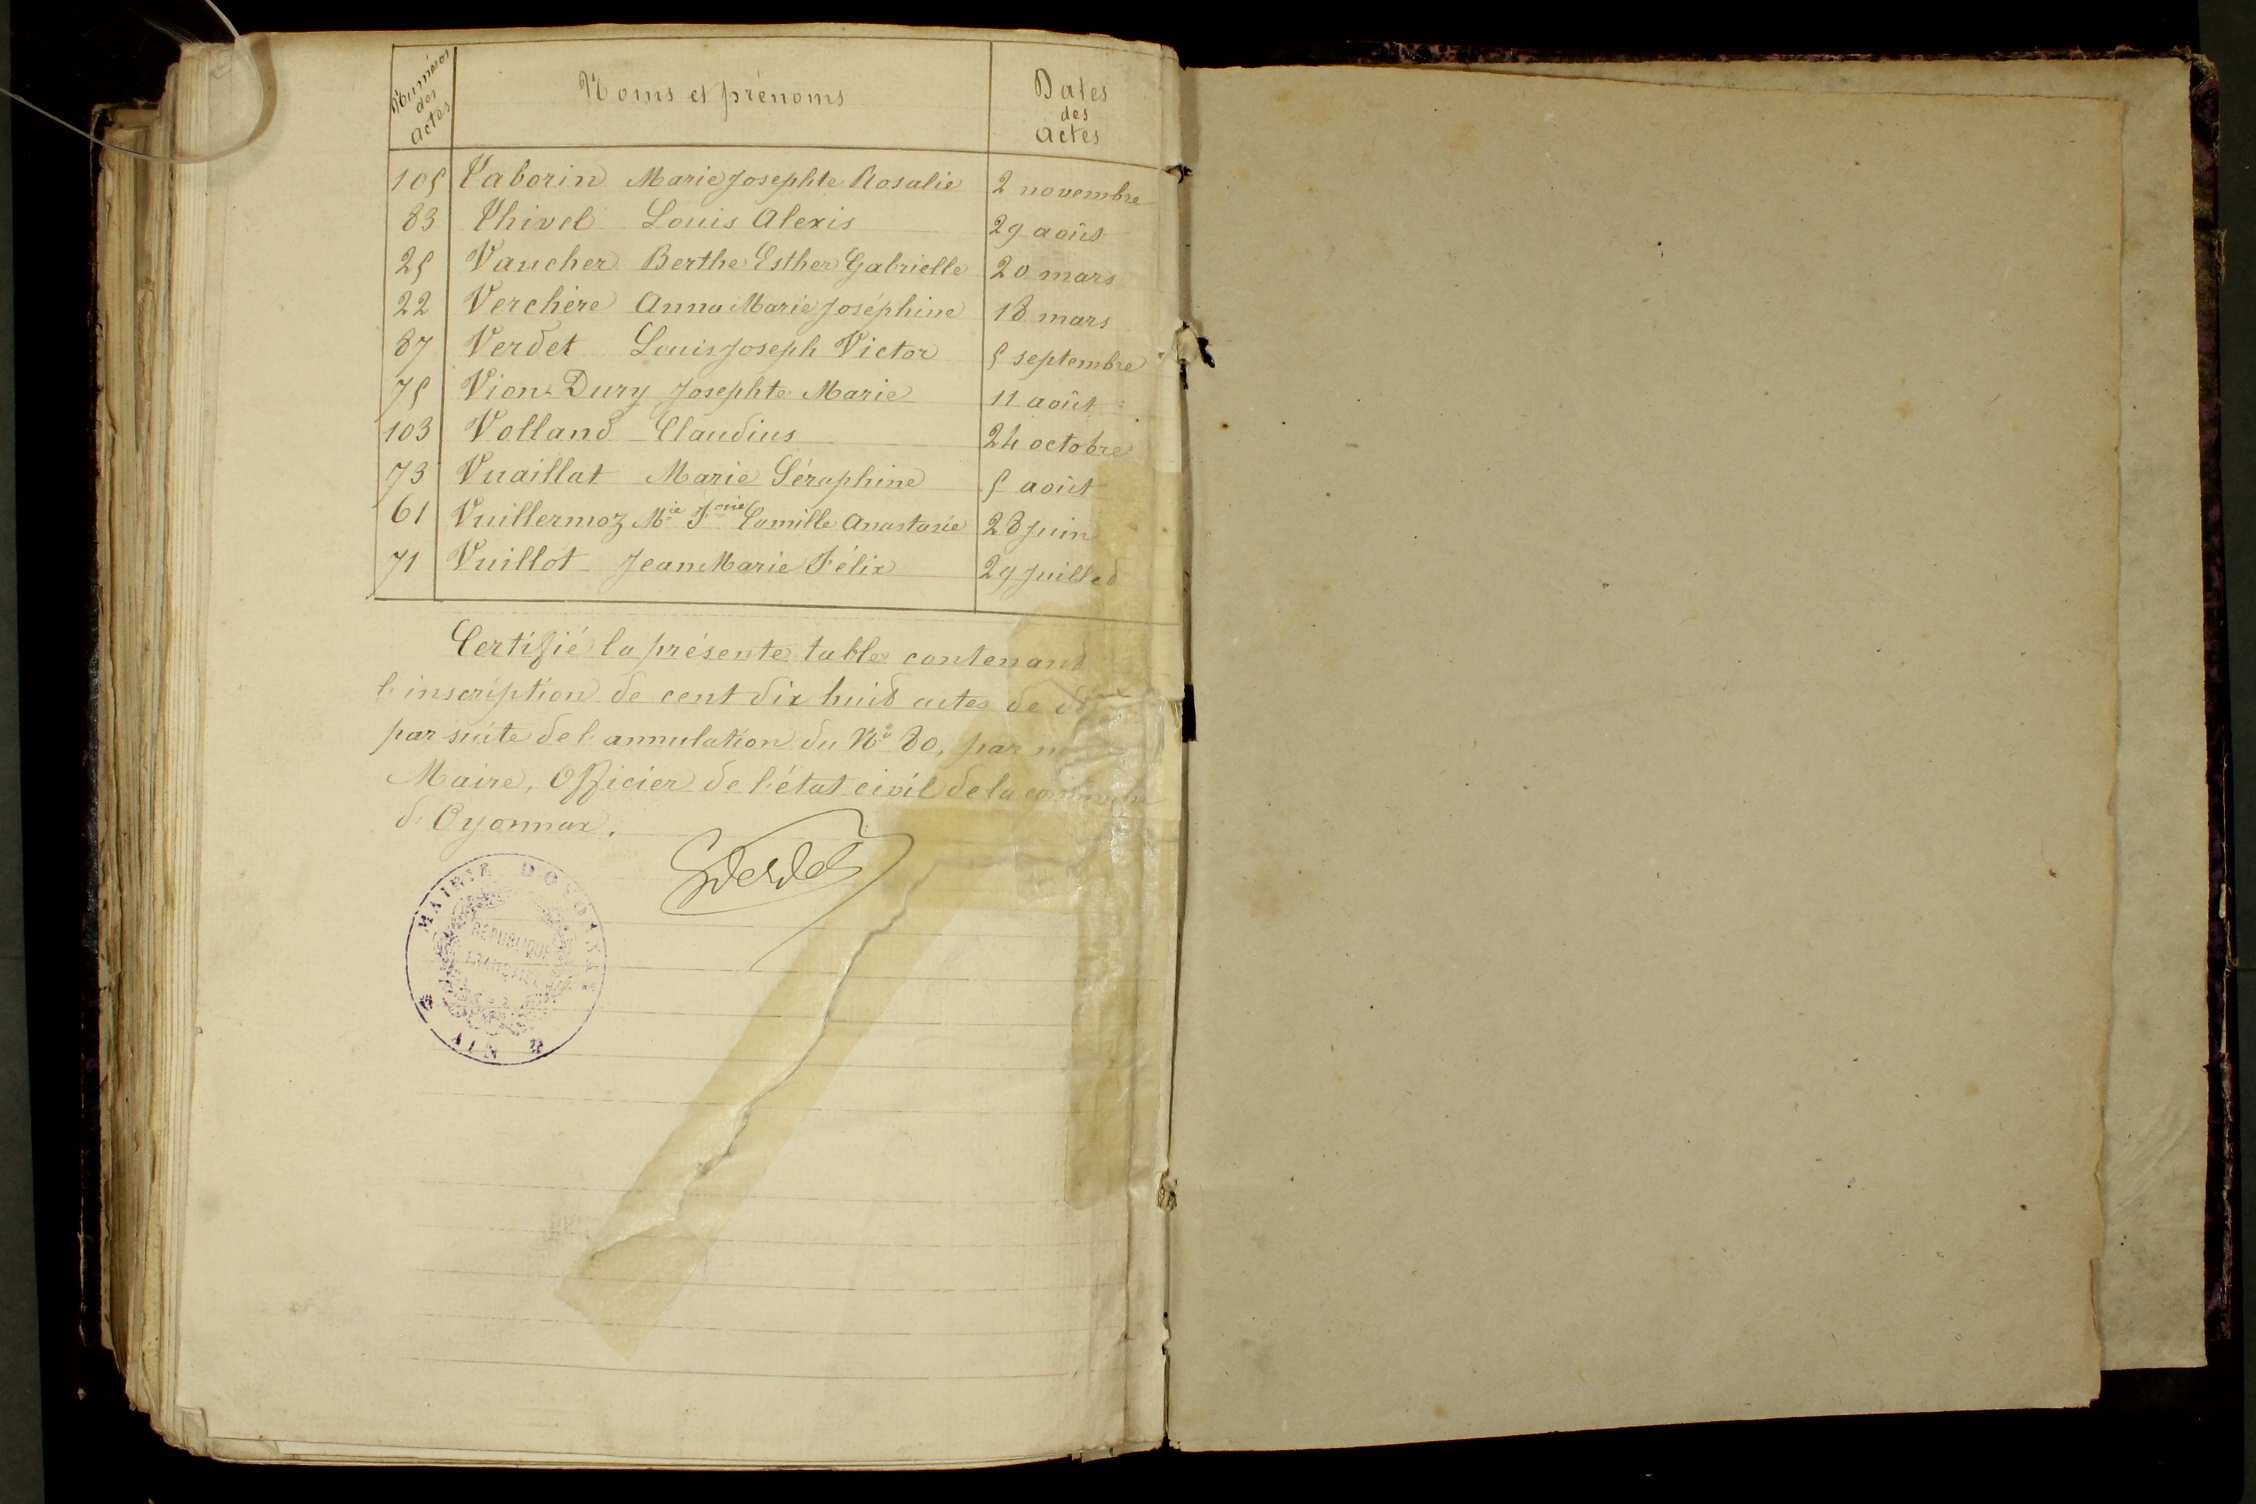 Numéros des Actes | Noms et prénoms | Dates des Actes
105 Taborin Marie Josephte Rosalie 2 novembre
83 Thivel Louis Alexis 29 août
25 Vaucher Berthe Esther Gabrielle 20 mars
22 Verchère Anna Marie Joséphine 18 mars
87 Verdet Louis Joseph Victor 5 septembre
75 Vion-Dury Josephte Marie 11 août
103 Volland Claudius 24 octobre
73 Vuaillat Marie Séraphine 5 août
61 Vuillermoz Mie Camille Anastasie 28 juin
71 Vuillot Jean Marie Félix 29 juillet
Certifié la présente table contenant
l'inscription de cent dix huit actes de
par suite de l'annulation du N° 80, par
Maire, Officier de l'état civil de la commune
d'Oyonnax.
Verdet
MAIRIE D'OYONNAX
RÉPUBLIQUE
FRANÇAISE
AIN